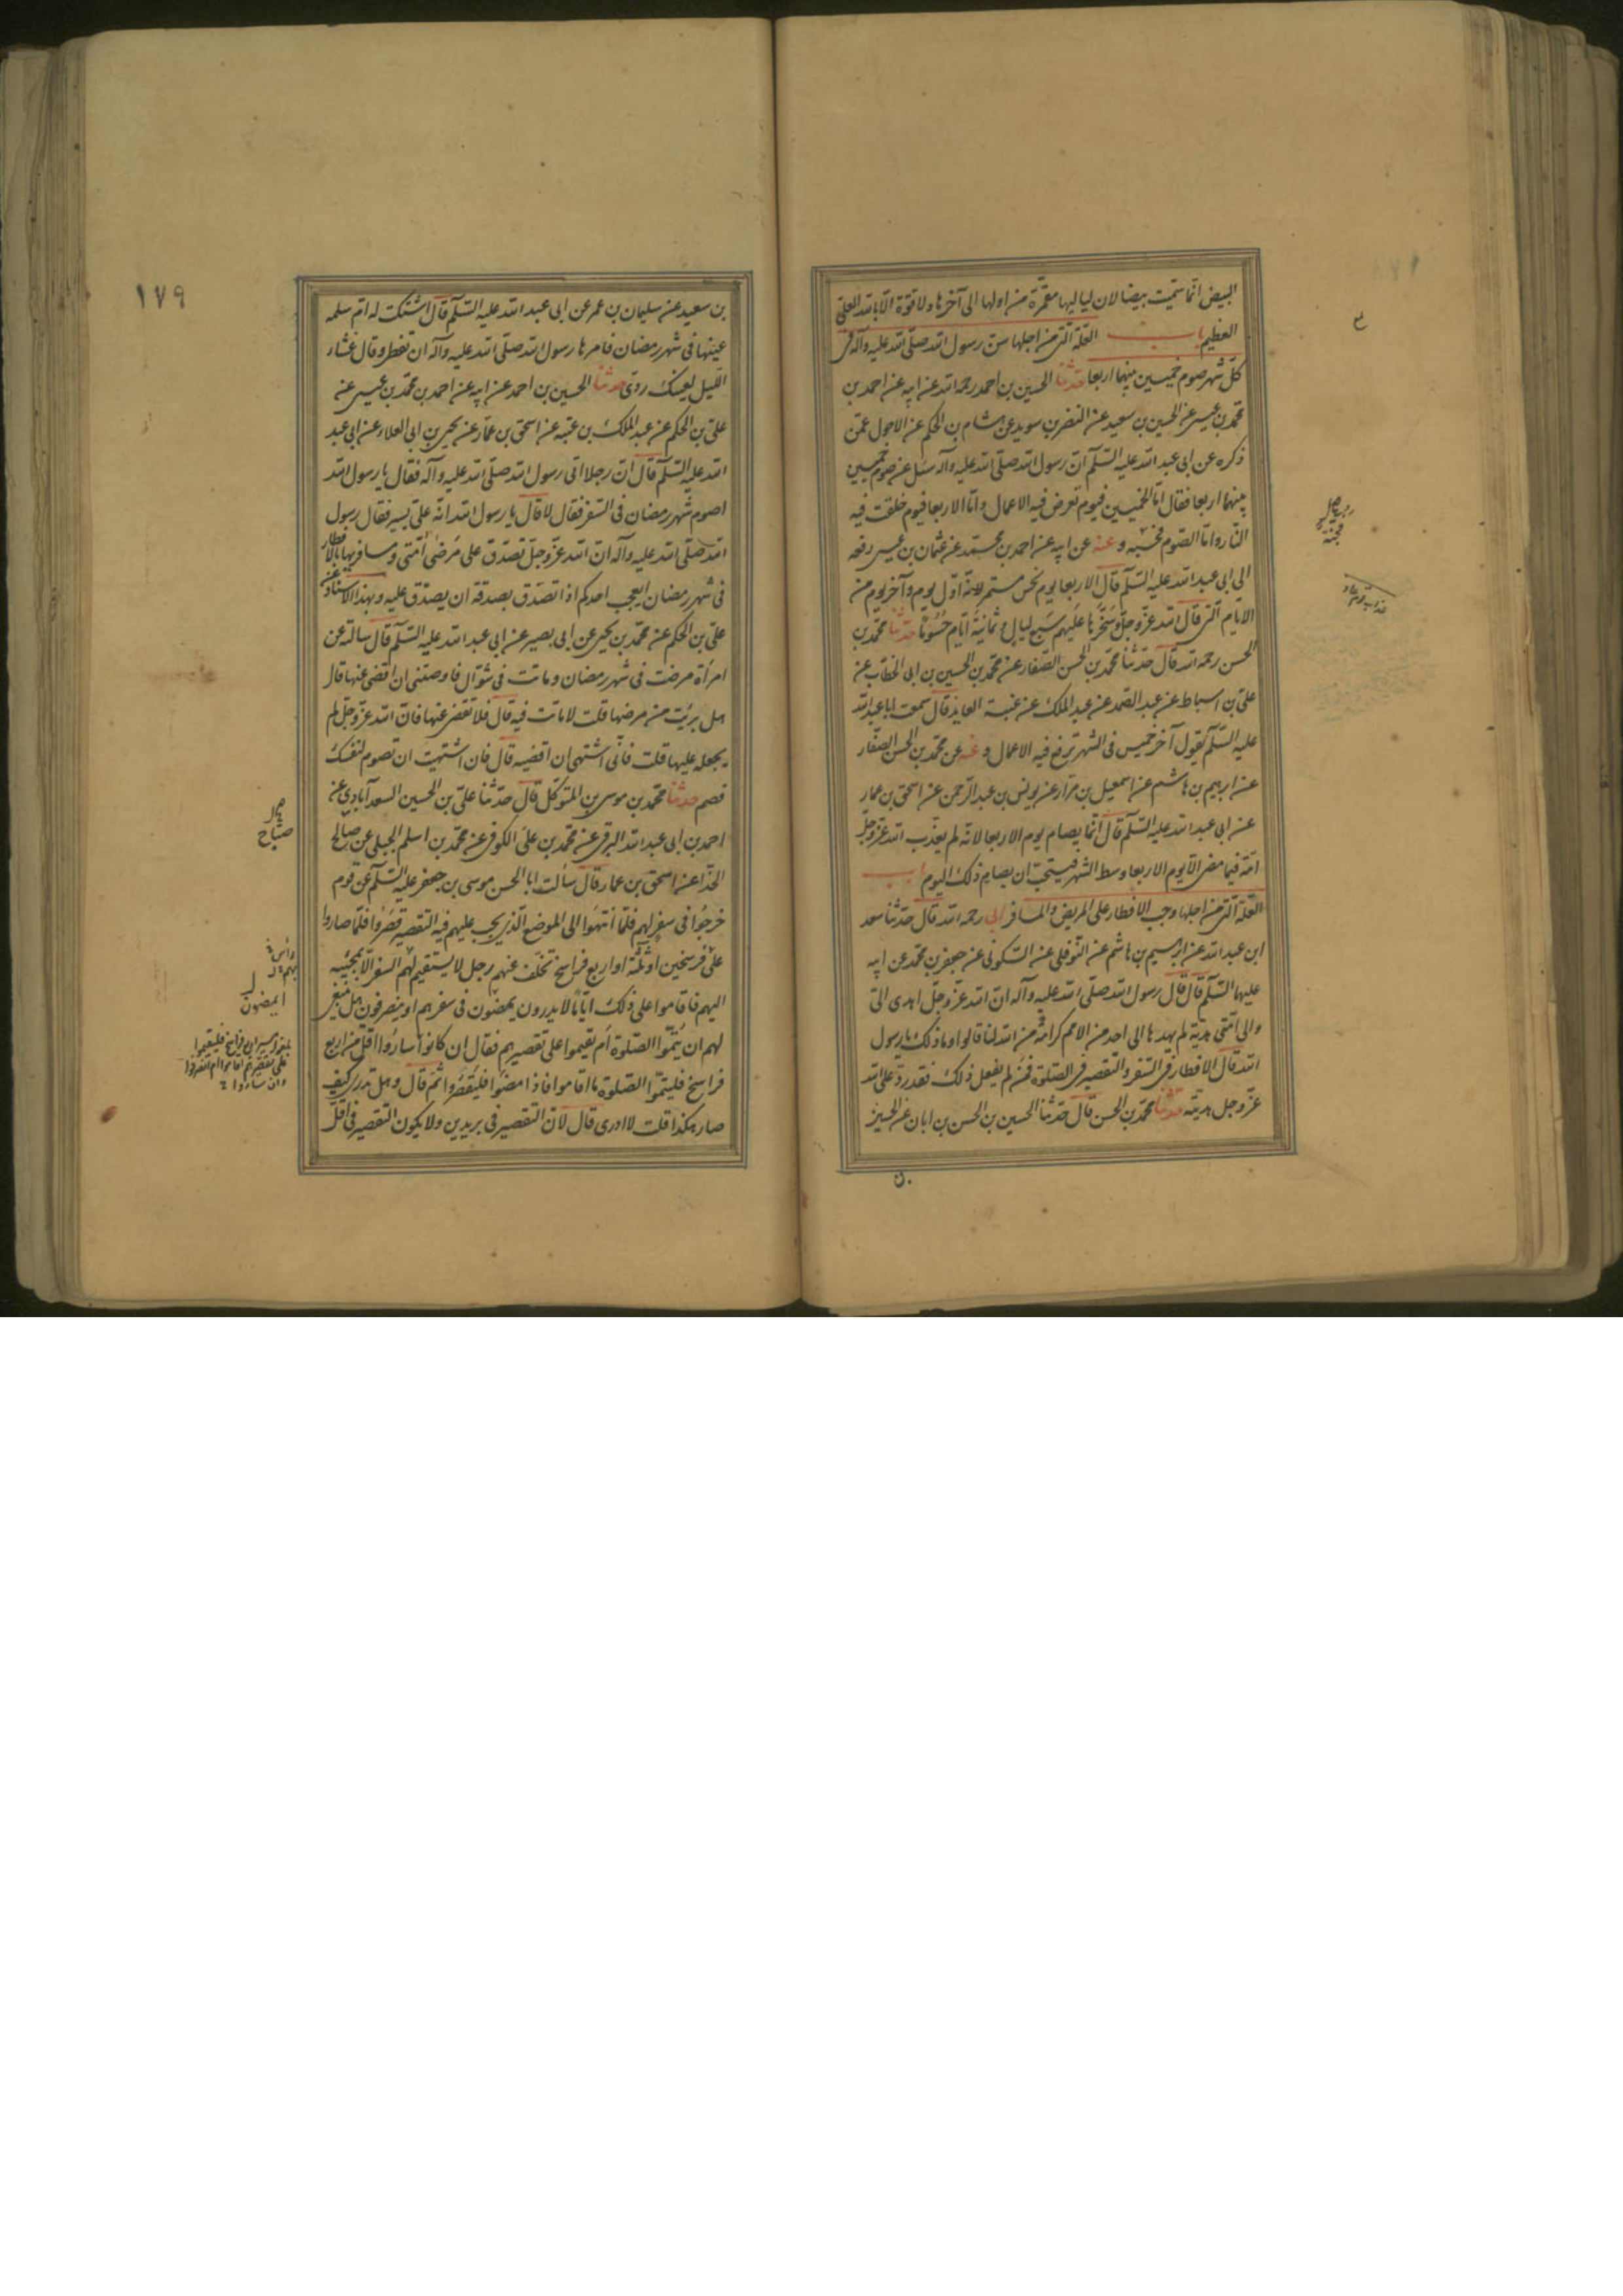 البيض انما سميت بيضا لان لياليها مقمرة من اولها الى آخرها ولا قوة الا بالله العلى
العظيم باب العلة التى من اجلها سن رسول الله صلى الله عليه وآله فى
كل شهر صوم خميسين بينهما اربعا حدثنا الحسين بن احمد رحمه الله عن ابيه عن احمد بن
محمد بن عيسى عن الحسين بن سعيد عن النضر بن سويد عن هشام بن الحكم عن الاحول عمن
ذكره عن ابى عبد الله عليه السلم ان رسول الله صلى الله عليه وآله سئل عن صوم خميسين
بينهما اربعا فقال اما الخميسين فيوم تعرض فيه الاعمال واما الاربعا فيوم خلقت فيه
النار واما الصوم فجنة وعنه عن ابيه عن احمد بن محمد عن عثمان بن عيسى رفعه
الى ابى عبد الله عليه السلم قال الاربعا يوم نحس مستمر لانه اول يوم وآخر يوم من
الايام التى قال الله عز وجل وسخرها عليهم سبع ليال وثمانية ايام حسوما حدثنا محمد بن
الحسن رحمه الله قال حدثنا محمد بن الحسن الصفار عن محمد بن الحسين بن ابى الخطاب عن
على بن اسباط عن عبد الصمد عن عبد الملك عن عنبسة العابد قال سمعت ابا عبد الله
عليه السلم يقول آخر خميس فى الشهر ترفع فيه الاعمال وعنه عن محمد بن الحسن الصفار
عن ابرهيم بن هاشم عن اسمعيل بن مرار عن يونس بن عبد الرحمن عن اسحق بن عمار
عن ابى عبد الله عليه السلم قال انما يصام يوم الاربعا لانه لم يعذب الله عز وجل
امة فيما مضى الا يوم الاربعا وسط الشهر فيستحب ان يصام ذلك اليوم باب
العلة التى من اجلها وجب الافطار على المريض والمسافر ابى رحمه الله قال حدثنا سعد
ابن عبد الله عن ابرهيم بن هاشم عن النوفلى عن السكونى عن جعفر بن محمد عن ابيه
عليها السلم قال قال رسول الله صلى الله عليه وآله ان الله عز وجل اهدى الى
والى امتى هدية لم يهدها الى احد من الامم كرامة من الله لنا قالوا وما ذلك يا رسول
الله قال الافطار فى السفر والتقصير فى الصلوة فمن لم يفعل ذلك فقد رد على الله
عز وجل هديته حدثنا محمد بن الحسن قال حدثنا الحسين بن الحسن بن ابان عن الحسين
بن
فجنة
١٧٩
بن سعيد عن سليمان بن عمر عن ابى عبد الله عليه السلم قال اشتكت له ام سلمه
عينها فى شهر رمضان فامرها رسول الله صلى الله عليه وآله ان تفطر وقال عشاء
الليل لعينك ردى حدثنا الحسين بن احمد عن ابيه عن احمد بن محمد بن عيسى عن
على بن الحكم عن عبد الملك بن عتبه عن اسحق بن عمار عن يحيى بن ابى العلاء عن ابى عبد
الله عليه السلم قال ان رجلا اتى رسول الله صلى الله عليه وآله فقال يا رسول الله
اصوم شهر رمضان فى السفر فقال لا قال يا رسول الله انه على يسير فقال رسول
الله صلى الله عليه وآله ان الله عز وجل تصدق على مرضى امتى ومسافريها بالافطار
فى شهر رمضان ايعجب احدكم اذا تصدق بصدقة ان يصدق عليه وبهذا الاسناد عن
على بن الحكم عن محمد بن يحيى عن ابى بصير عن ابى عبد الله عليه السلم قال سالته عن
امرأة مرضت فى شهر رمضان وماتت فى شوال فاوصتنى ان اقضى عنها قال
هل برئت من مرضها قلت لا ماتت فيه قال فلا تقض عنها فان الله عز وجل لم
يجعله عليها قلت فانى اشتهى ان اقضيه قال فان اشتهيت ان تصوم لنفسك
فصم حدثنا محمد بن موسى بن المتوكل قال حدثنا على بن الحسين السعدآبادى عن
احمد بن ابى عبد الله البرقى عن محمد بن على الكوفى عن محمد بن اسلم الجبلى عن صالح
الحذا عن اسحق بن عمار قال سألت ابا الحسن موسى بن جعفر عليه السلم عن قوم
خرجوا فى سفر لهم فلما انتهوا الى الموضع الذى يجب عليهم فيه التقصير قصروا فلما صاروا
على فرسخين او ثلثة او اربع فراسخ تخلف عنهم رجل لا يستقيم لهم السفر الا بمجيئه
اليهم فاقاموا على ذلك اياما لا يدرون يمضون فى سفرهم او ينصرفون هل ينبغى
لهم ان يتموا الصلوة ام يقيموا على تقصيرهم فقال ان كانوا ساروا اقل من اربع
فراسخ فليتموا الصلوة ما اقاموا فاذا مضوا فليقصروا ثم قال وهل تدرى كيف
صار هكذا قلت لا ادرى قال لان التقصير فى بريدين ولا يكون التقصير فى اقل
صباح
ايمضون